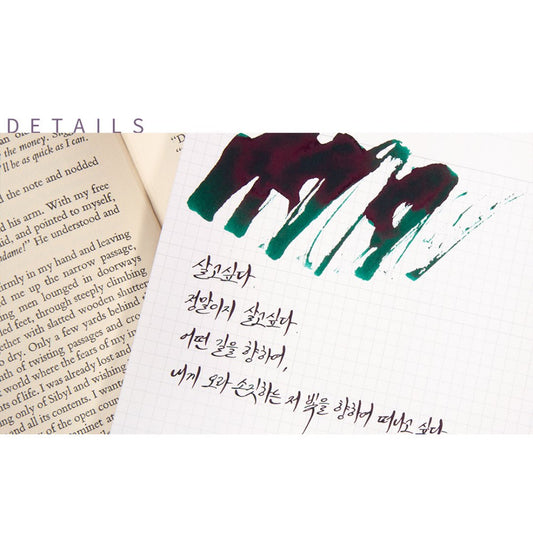 DETAILS
the money.
'll be as quick as I can.
the note and nodded
his arm. With my free
and pointed to myself,
dame!" He understood and
irmly in my hand and leaving
d me up the narrow passage,
ing men lounged in doorways
ied feet, through steeply climbing
ether with slatted wooden shutter
dry. Only a few yards behind
th of twisting passages and cro
world where the fears of my
nts of life. I was already lost and
ing only of Sibyl and wishing
and all its contents. I want
r of the open
살고싶다.
정말이지 살고싶다.
어떤 길을 향하여,
내게 오라 손짓하는 저 빛을 향하여 떠나고 싶다